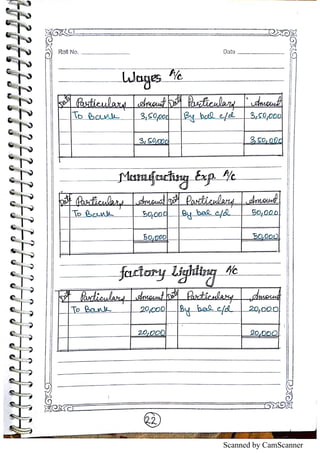 Roll No. Date
Wages A/c
Date Particulars Amount Date Particulars Amount
To Bank 3,50,000 By bal c/d 3,50,000
3,50,000 3,50,000
Manufacting Exp. A/c
Date Particulars Amount Date Particulars Amount
To Bank 50,000 By bal c/d 50,000
50,000 50,000
factory Lighting A/c
Date Particulars Amount Date Particulars Amount
To Bank 20,000 By bal c/d 20,000
20,000 20,000
22
Scanned by CamScanner